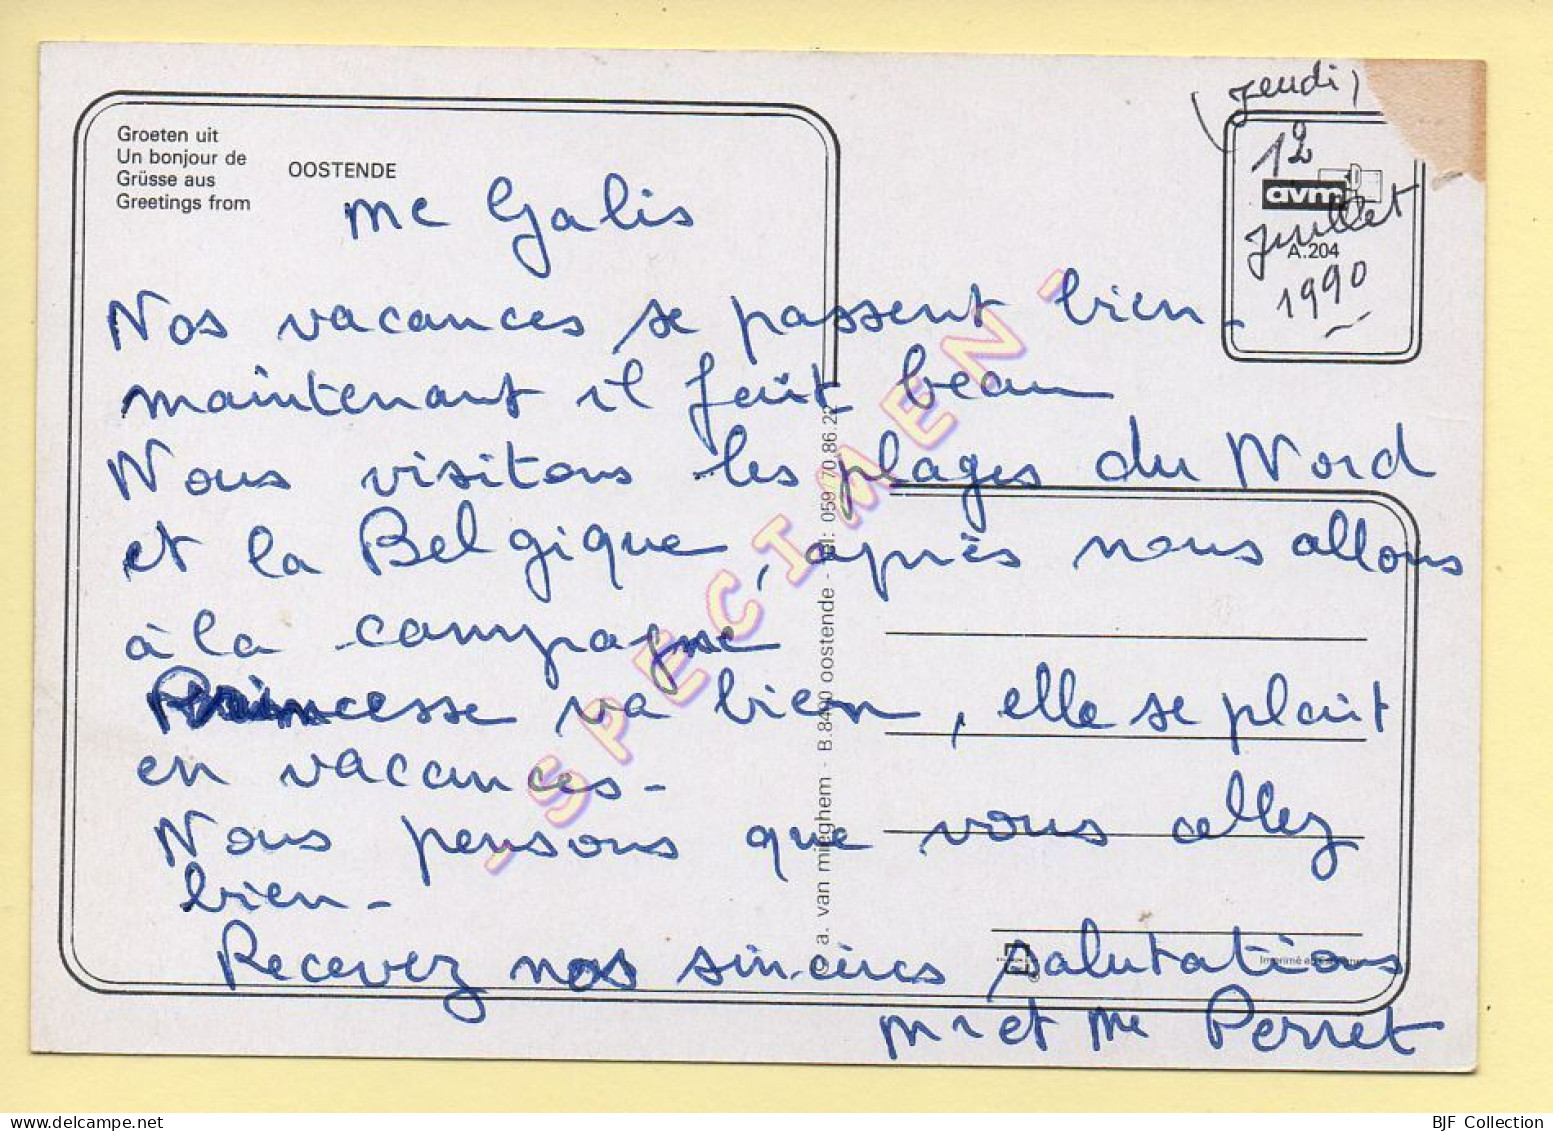 (jeudi)
12
juillet
1990
avm
A.204
Groeten uit
Un bonjour de
Grüsse aus
Greetings from
OOSTENDE
Me Galis
Nos vacances se passent bien_
maintenant il fait beau
Nous visitons les plages du Nord
et la Belgique, après nous allons
à la campagne
Princesse va bien, elle se plait
en vacances_
Nous pensons que vous allez
bien_
Recevez nos sincères salutations
Mr et Me Perret
a. van mieghem - B.8400 oostende - Tel: 059 70.86.22
"SPECIMEN"
BJF Collection